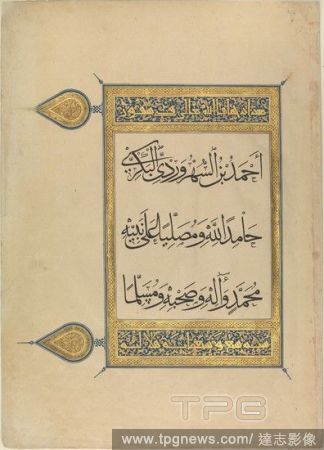 أحمد بن السهروردي البكري
حامدا لله ومصليا على نبيه
محمد وآله وصحبه ومسلما
TPG
www.tpgnews.com / 達志影像